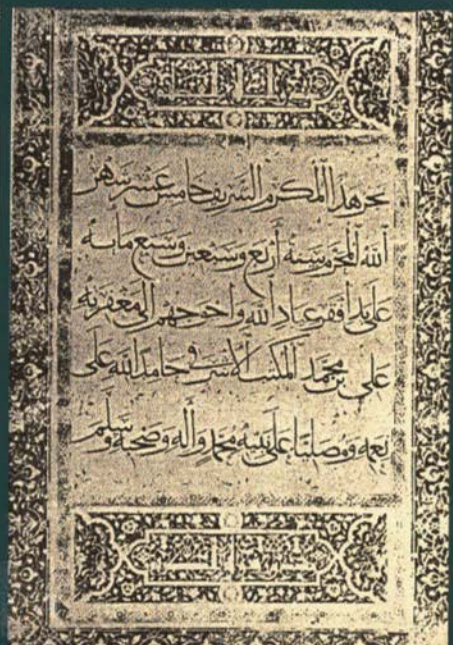 نجز هذا المكرم الشريف خامس عشر شهر
الله المحرم سنة أربع وسبعين وسبع مائة
على يد أفقر عباد الله وأحوجهم إلى مغفرته
علي بن محمد المكتب الأشرفي حامدا لله على
نعمه ومصليا على نبيه محمد وآله وصحبه وسلم